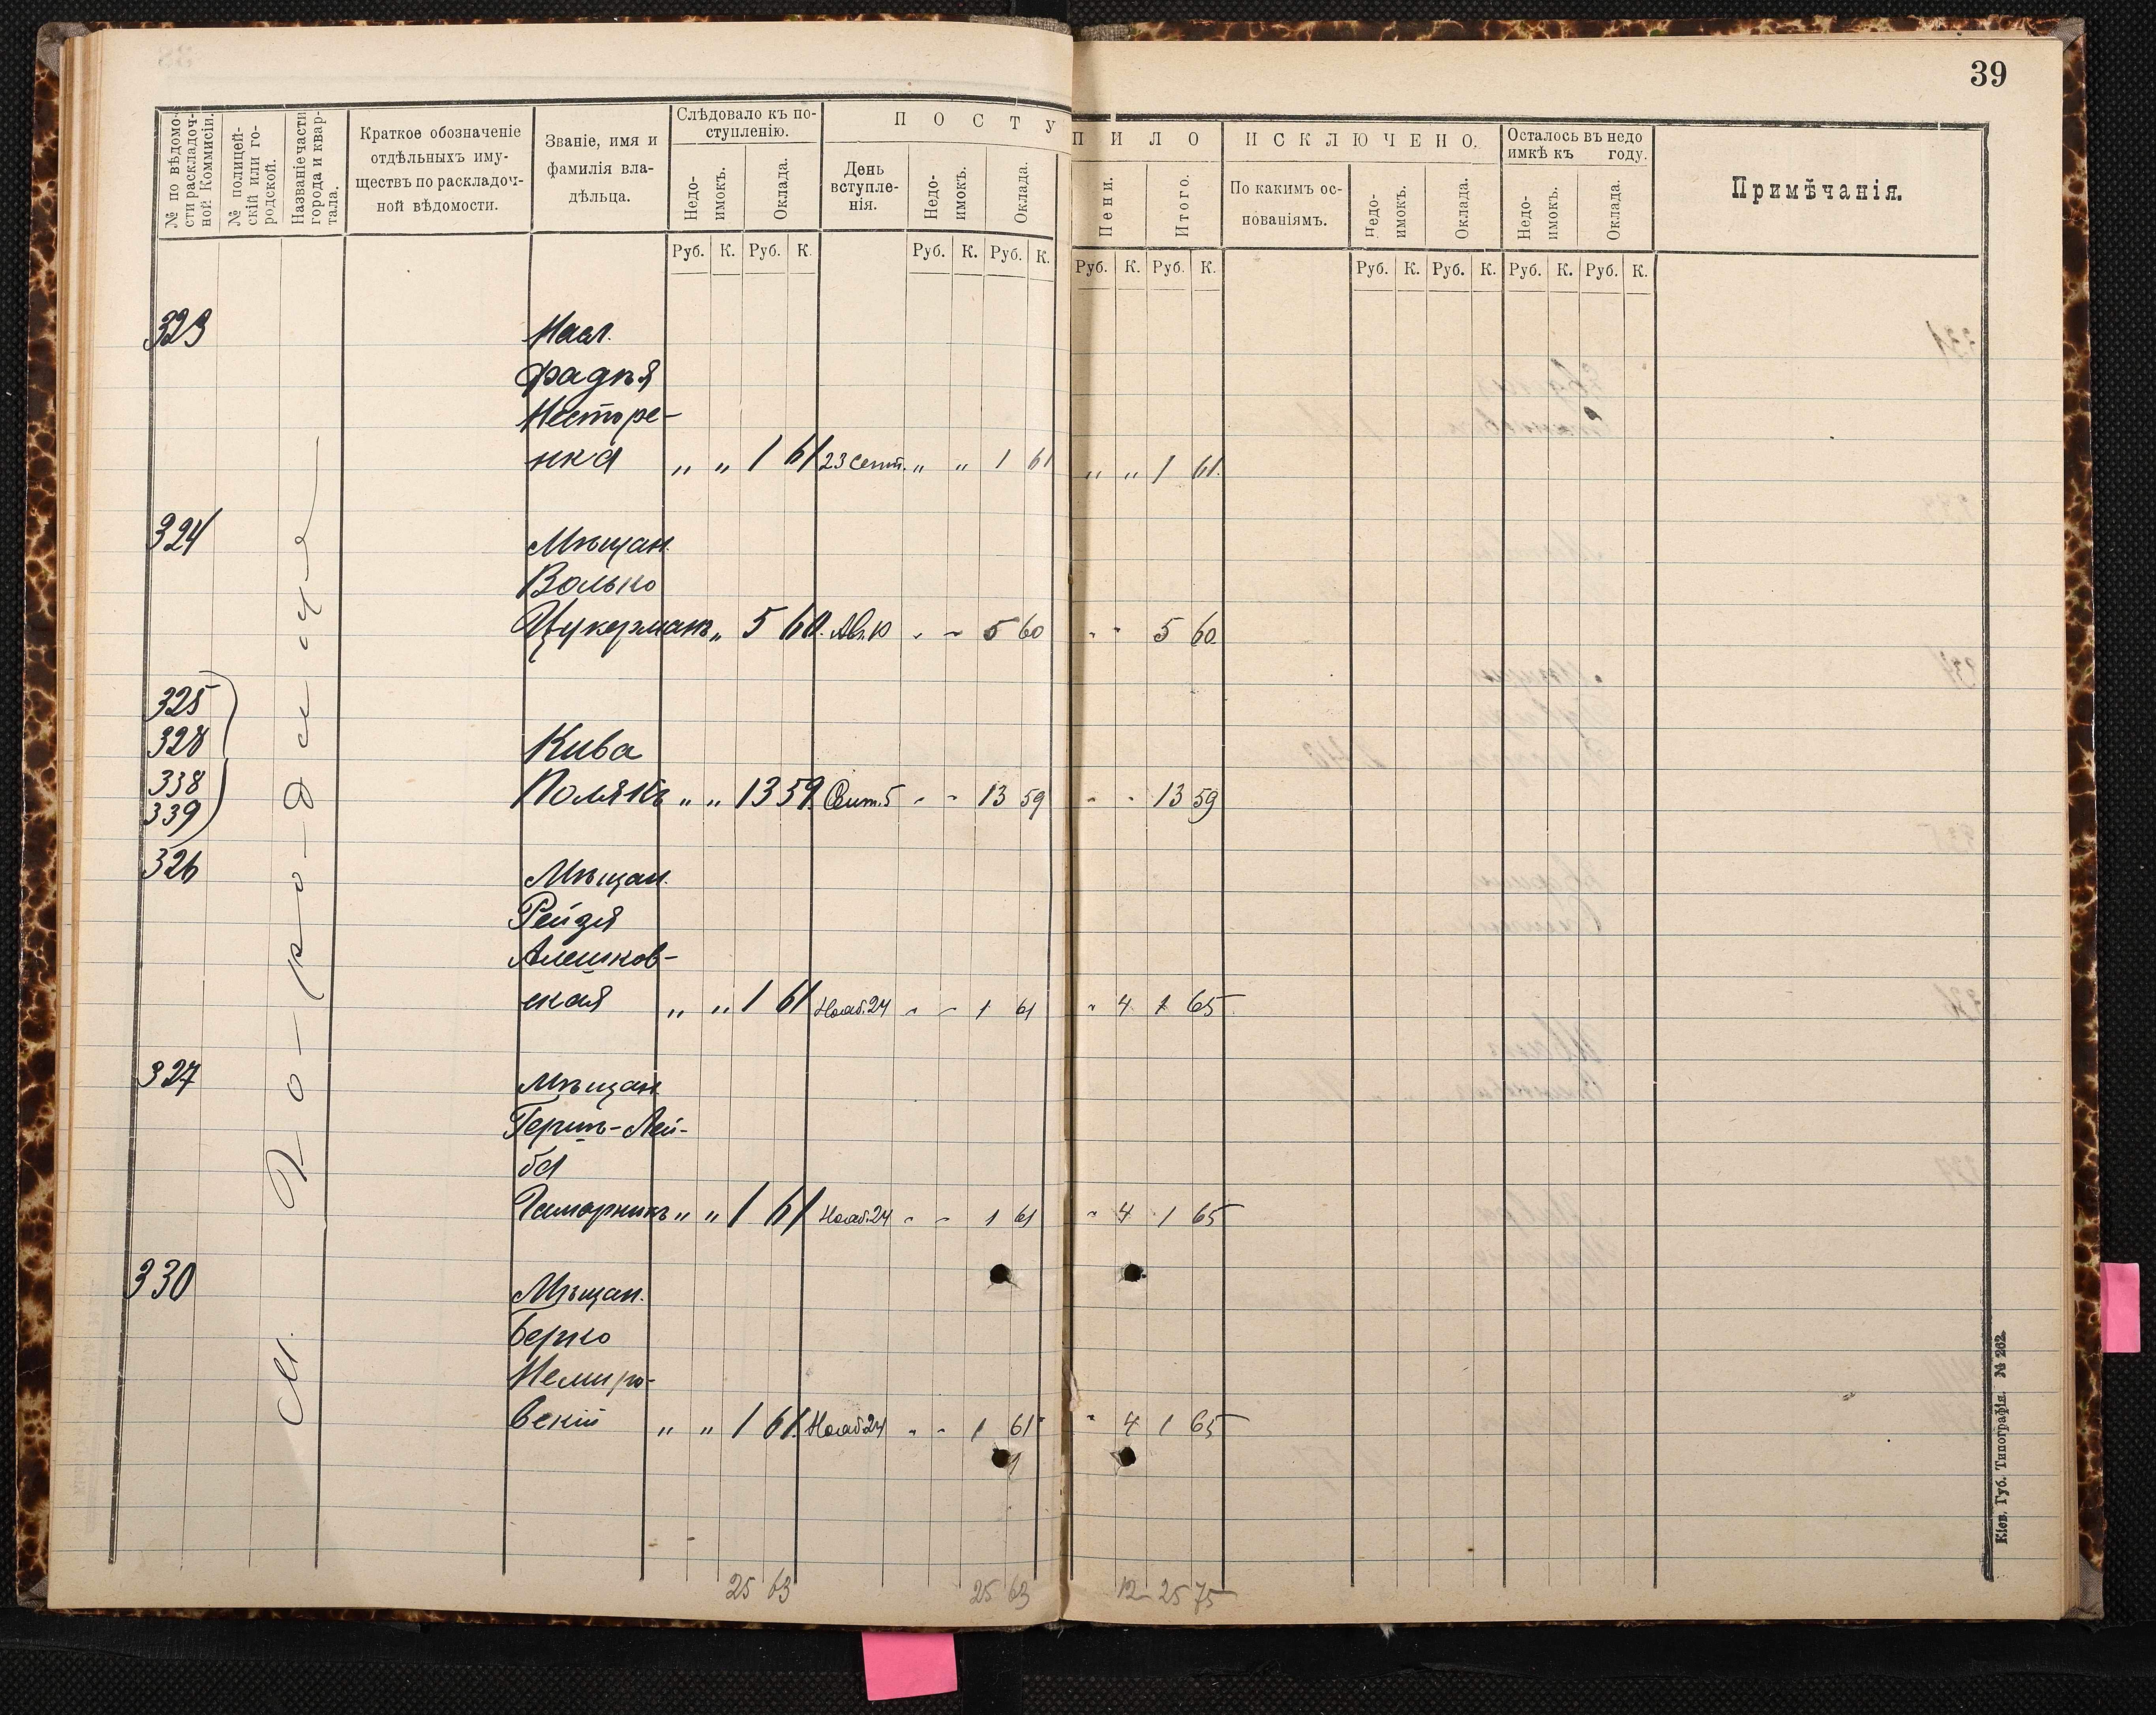 39
№ по вѣдомости раскладочной Коммисіи.
№ полицейскій или городской.
Названіе части города и квартала.
Краткое обозначеніе
отдѣльныхъ иму-
ществъ по раскладоч-
ной вѣдомости.
Званіе, имя и
фамилія вла-
дѣльца.
Слѣдовало къ по-
ступленію.
Недо-
имокъ.
Оклада.
ПОСТУПИЛО
День
вступле-
нія.
Недо-
имокъ.
Оклада.
Пени.
Итого.
ИСКЛЮЧЕНО.
По какимъ ос-
нованіямъ.
Недо-
имокъ.
Оклада.
Осталось въ недо
имкѣ къ году.
Недо-
имокъ.
Оклада.
Примѣчанія.
Руб. К. Руб. К. Руб. К. Руб. К. Руб. К. Руб. К. Руб. К. Руб. К. Руб. К. Руб. К.
323 Насл.
Фадѣя
Несторе-
нка „ „ 1 61 23 Сент. „ „ 1 61 „ „ 1 61.
324 Мѣщан.
Волько
Цукерманъ „ 5 60. Авг. 10 - - 5 60 - - 5 60
325
328 Кива
338
Полякъ „ „ 13 59. Сент. 5 - - 13 59 - - 13 59
339
326 Мѣщан.
Рейзя
Алешков-
ская „ „ 1 61 Нояб. 24 - - 1 61 - 4 1 65
327 Мѣщан.
Гершъ-Лей-
ба
„ „ 1 61 Нояб. 24 - - 1 61 - 4 1 65
330 Мѣщан.
Берко
Немиро-
вскій „ „ 1 61. Нояб. 24 - - 1 61 - 4 1 65
25 63 25 63 12 25 75
Кіев. Губ. Типографія. № 262.